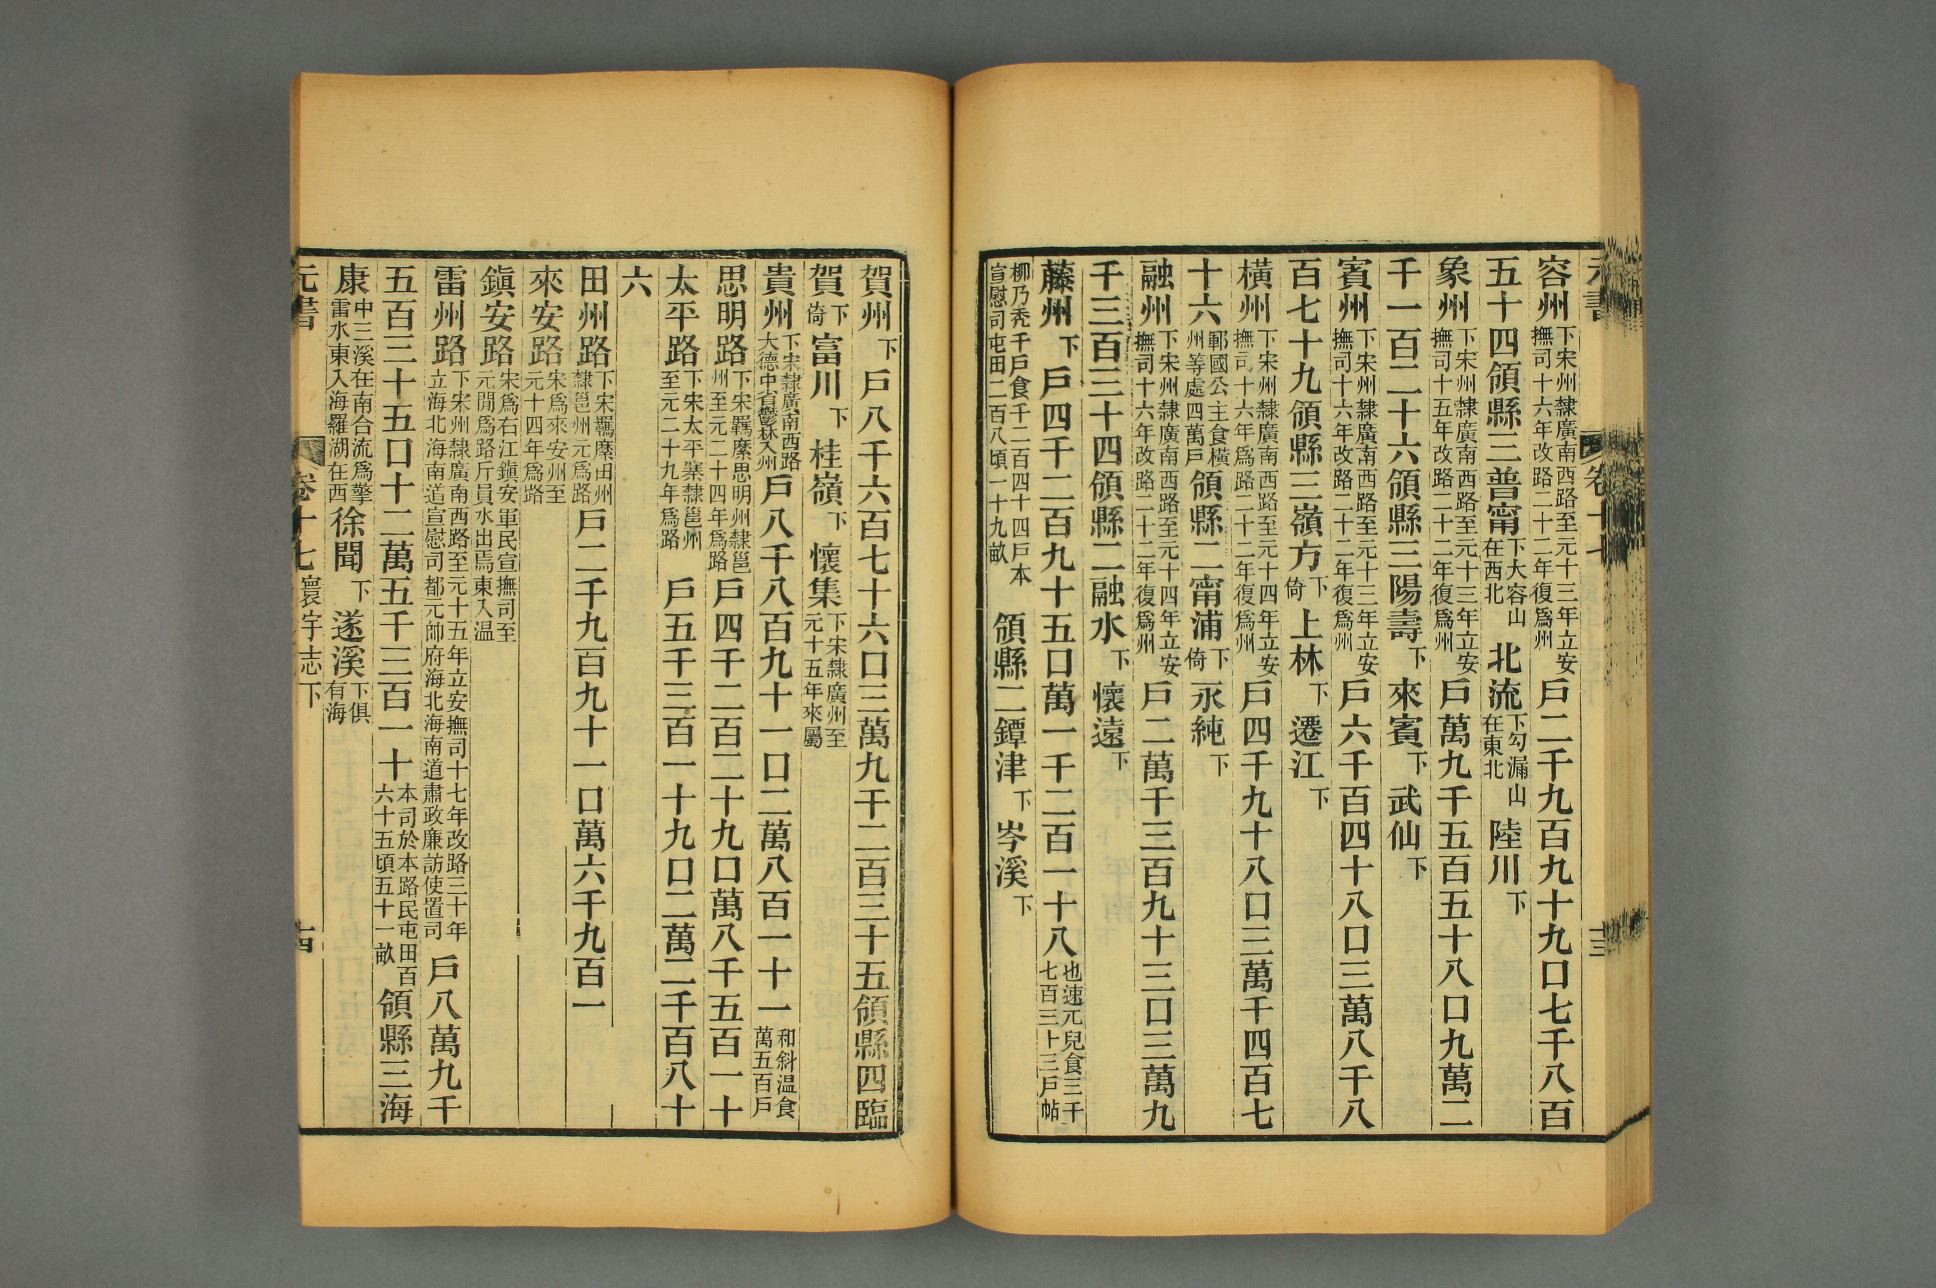 容州下宋州隸廣南西路至元十三年立安撫司十六年改路二十二年復爲州戶二千九百九十九口七千八百
五十四領縣三普甯下大容山在西北北流下勾漏山在東北陸川下
象州下宋州隸廣南西路至元十三年立安撫司十五年改路二十二年復爲州戶萬九千五百五十八口九萬二
千一百二十六領縣三陽壽下來賓下武仙下
賓州下宋州隸廣南西路至元十三年立安撫司十六年改路二十二年復爲州戶六千百四十八口三萬八千八
百七十九領縣三嶺方下倚上林下遷江下
橫州下宋州隸廣南西路至元十四年立安撫司十六年爲路二十二年復爲州戶四千九十八口三萬千四百七
十六鄆國公主食橫州等處四萬戶領縣二甯浦下倚永純下
融州下宋州隸廣南西路至元十四年立安撫司十六年改路二十二年復爲州戶二萬千三百九十三口三萬九
千三百三十四領縣二融水下懷遠下
藤州下戶四千二百九十五口萬一千二百一十八也速兀兒食三千七百三十三戶帖
柳乃禿千戶食千二百四十四戶本宣慰司屯田二百八頃一十九畝領縣二鐔津下岑溪下
賀州下戶八千六百七十六口三萬九千二百三十五領縣四臨
賀下倚富川下桂嶺下懷集下宋隸廣州至元十五年來屬
貴州下宋隸廣南西路大德中省鬱林入州戶八千八百九十一口二萬八百一十一和斜溫食萬五百戶
思明路下宋羈縻思明州隸邕州至元二十四年爲路戶四千二百二十九口萬八千五百一十
太平路下宋太平寨隸邕州至元二十九年爲路戶五千三百一十九口二萬二千百八十
六
田州路下宋羈縻田州隸邕州元爲路戶二千九百九十一口萬六千九百一
來安路宋爲來安州至元十四年爲路
鎭安路宋爲右江鎭安軍民宣撫司至元閒爲路斤員水出焉東入溫
雷州路下宋州隸廣南西路至元十五年立安撫司十七年改路三十年立海北海南道宣慰司都元帥府海北海南道肅政廉訪使置司戶八萬九千
五百三十五口十二萬五千三百一十本司於本路民屯田百六十五頃五十一畝領縣三海
康中三溪在南合流爲擎雷水東入海羅湖在西徐聞下遂溪下俱有海
元書 卷十七 寰宇志下 十四